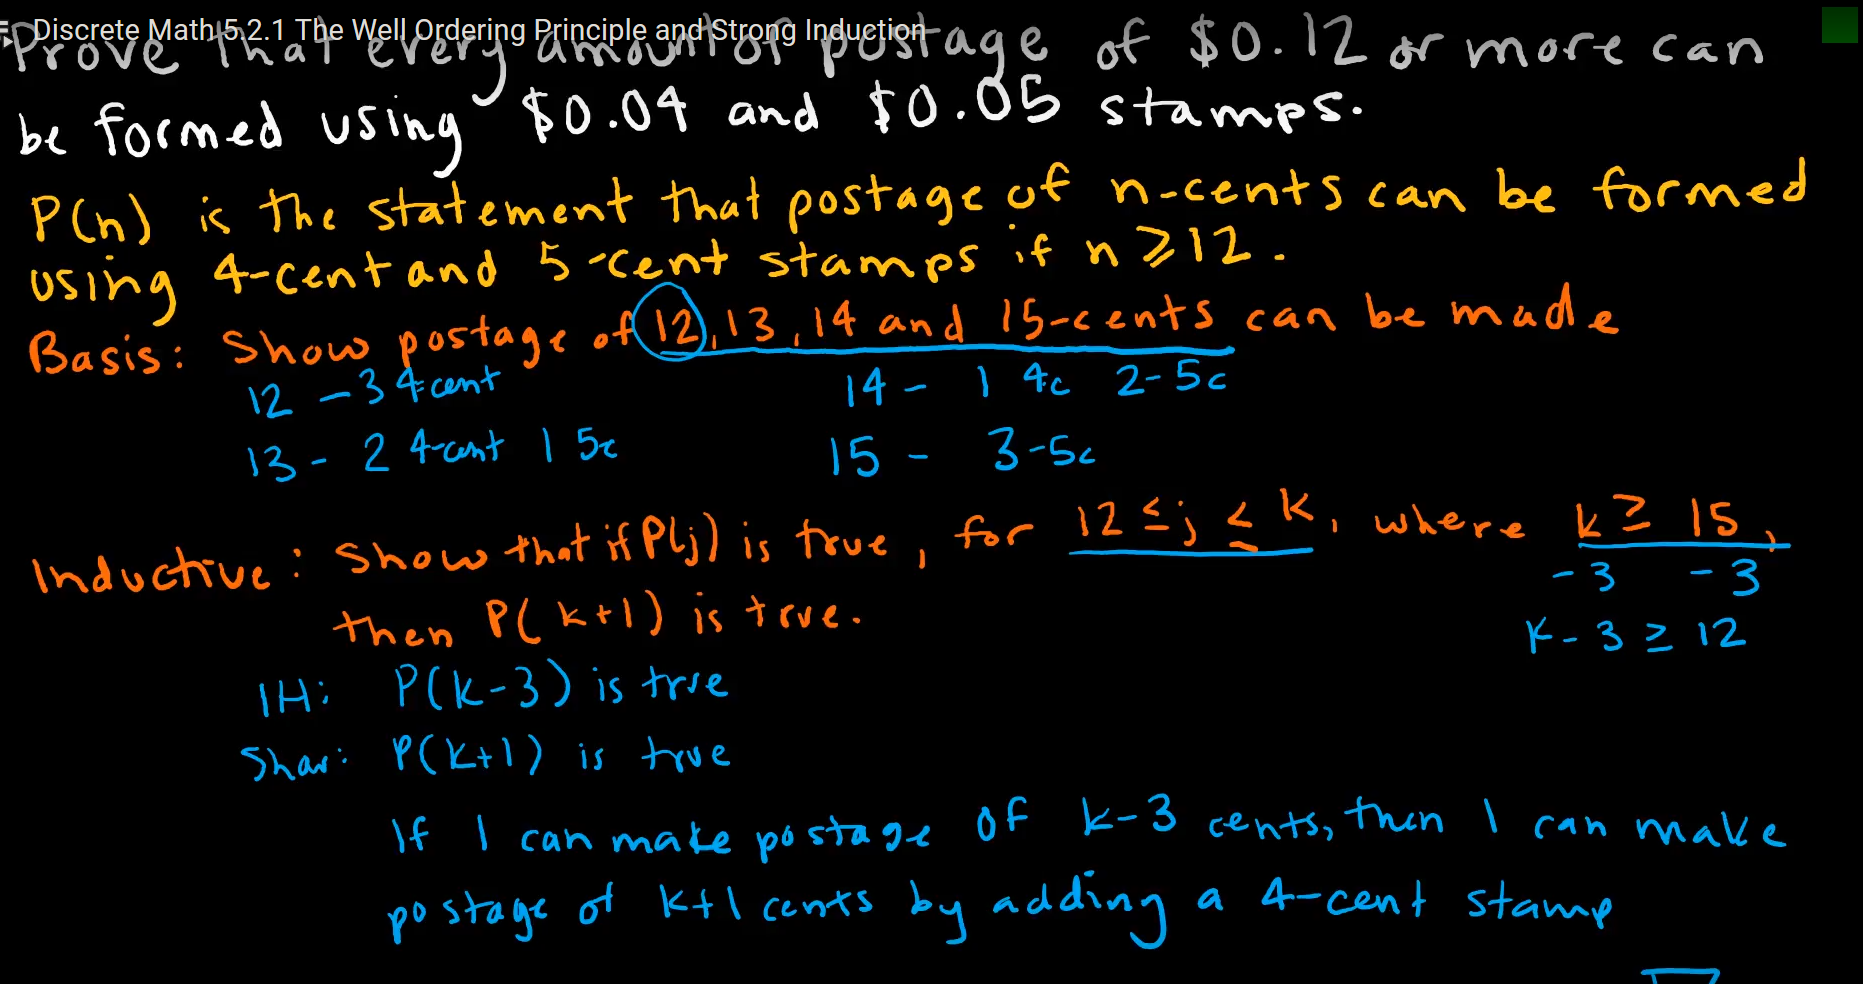 Discrete Math 5.2.1 The Well Ordering Principle and Strong Induction
Prove that every amount of postage of $0.12 or more can
be formed using $0.04 and $0.05 stamps.
P(n) is the statement that postage of n-cents can be formed
using 4-cent and 5-cent stamps if n ≥ 12.
Basis: Show postage of 12, 13, 14 and 15-cents can be made
12 - 3 4-cent 14 - 1 4c 2-5c
13 - 2 4-cent 1 5c 15 - 3-5c
Inductive: Show that if P(j) is true, for 12 ≤ j ≤ k, where k ≥ 15,
-3 -3
then P(k+1) is true. k-3 ≥ 12
IH: P(k-3) is true
Show: P(k+1) is true
If I can make postage of k-3 cents, then I can make
postage of k+1 cents by adding a 4-cent stamp